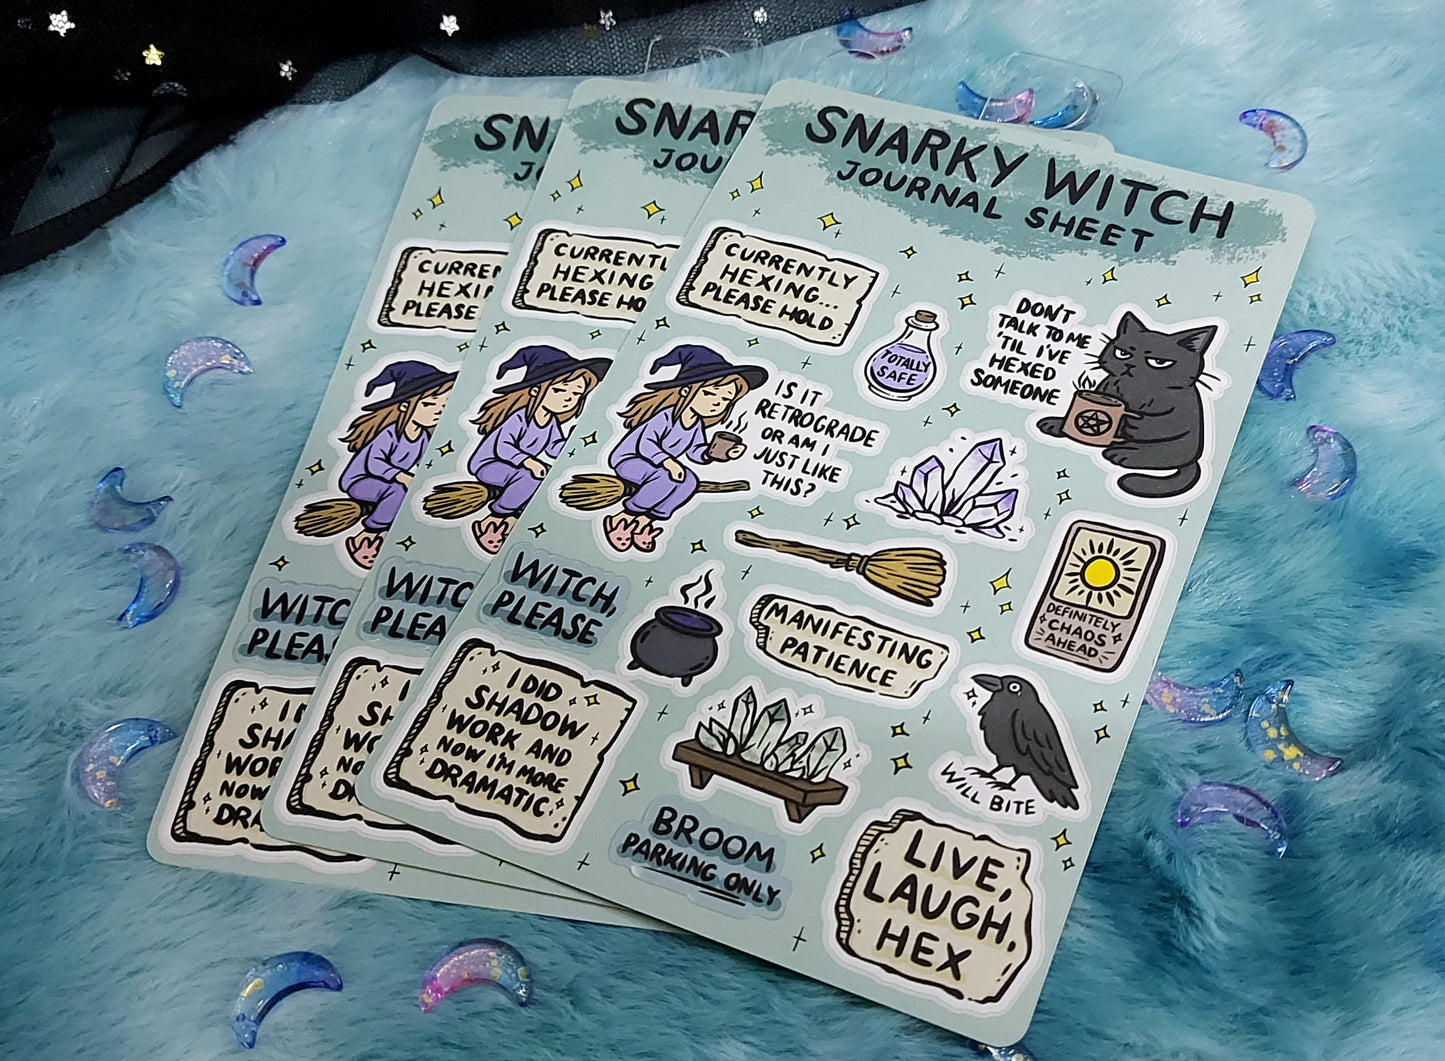 SNARKY WITCH
JOURNAL SHEET
CURRENTLY
HEXING...
PLEASE HOLD
TOTALLY
SAFE
DON'T
TALK TO ME
'TIL I'VE
HEXED
SOMEONE
IS IT
RETROGRADE
OR AM I
JUST LIKE
THIS?
WITCH,
PLEASE
MANIFESTING
PATIENCE
DEFINITELY
CHAOS
AHEAD
I DID
SHADOW
WORK AND
NOW I'M MORE
DRAMATIC
WILL BITE
BROOM
PARKING ONLY
LIVE,
LAUGH,
HEX
SNAR
JOU
CURRENTL
HEXING
PLEASE HO
WITC
PLEA
I
SH
WO
NO
D
SN
JO
CURREN
HEXI
PLEASE
WITC
PLEA
I
SHA
WOR
NOW
DRA